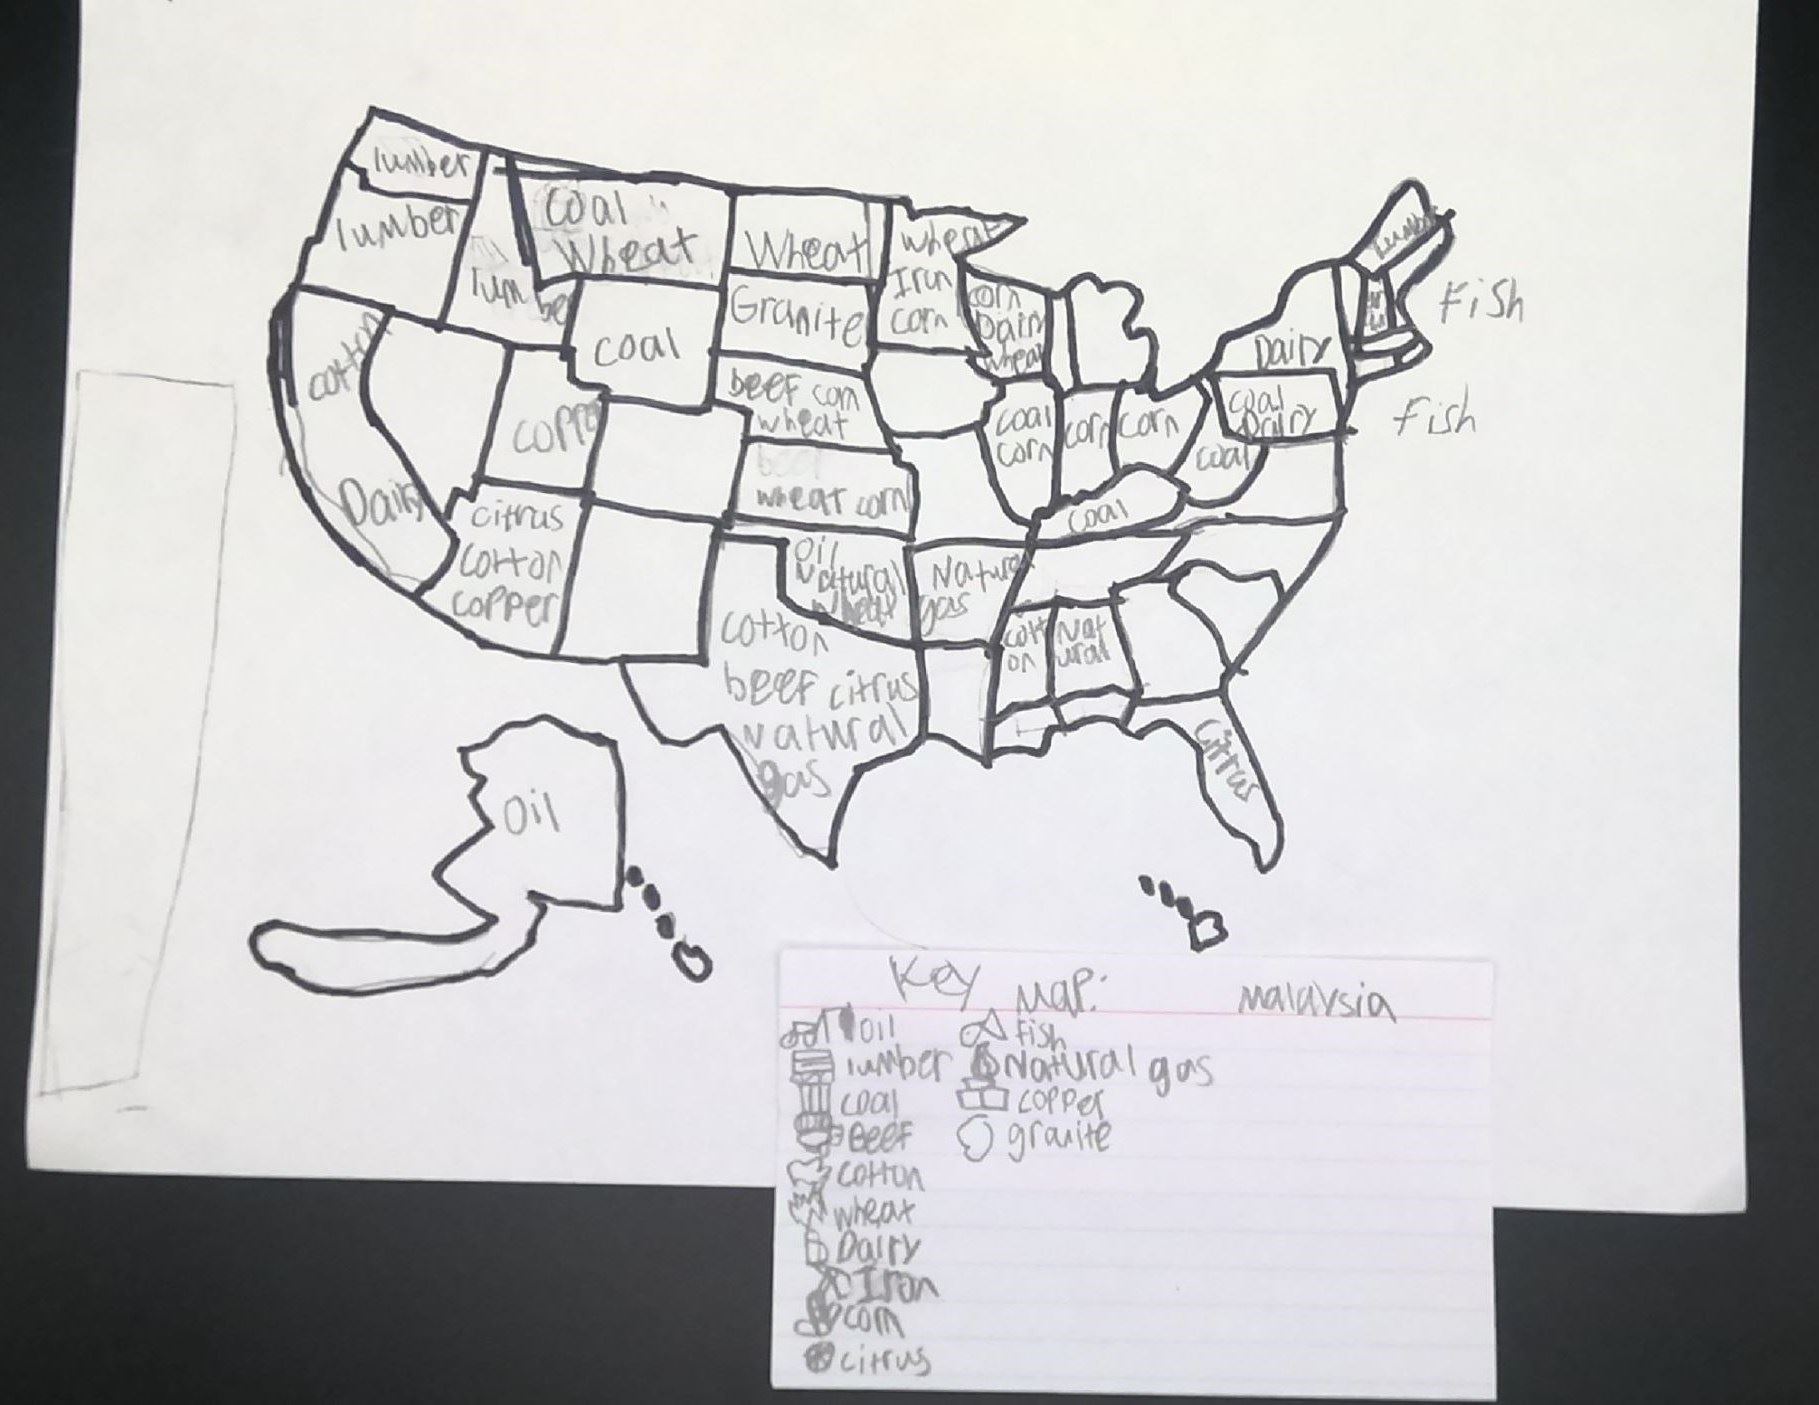 lumber
lumber
lumber
coal
wheat
Wheat
wheat
Iron
corn
corn
Dairy
wheat
lumber
Fish
Granite
coal
cotton
Dairy
Dairy
beef corn
wheat
coal
Dairy
Fish
coal
corn
corn
corn
coal
coal
beef
wheat corn
citrus
cotton
copper
oil
Natural
wheat
Natural
gas
cotton
beef citrus
Natural
gas
cott
on
Nat
ural
citrus
oil
Key
Map:
Malaysia
oil
fish
lumber
Natural gas
coal
copper
Beef
granite
cotton
wheat
Dairy
Iron
corn
citrus